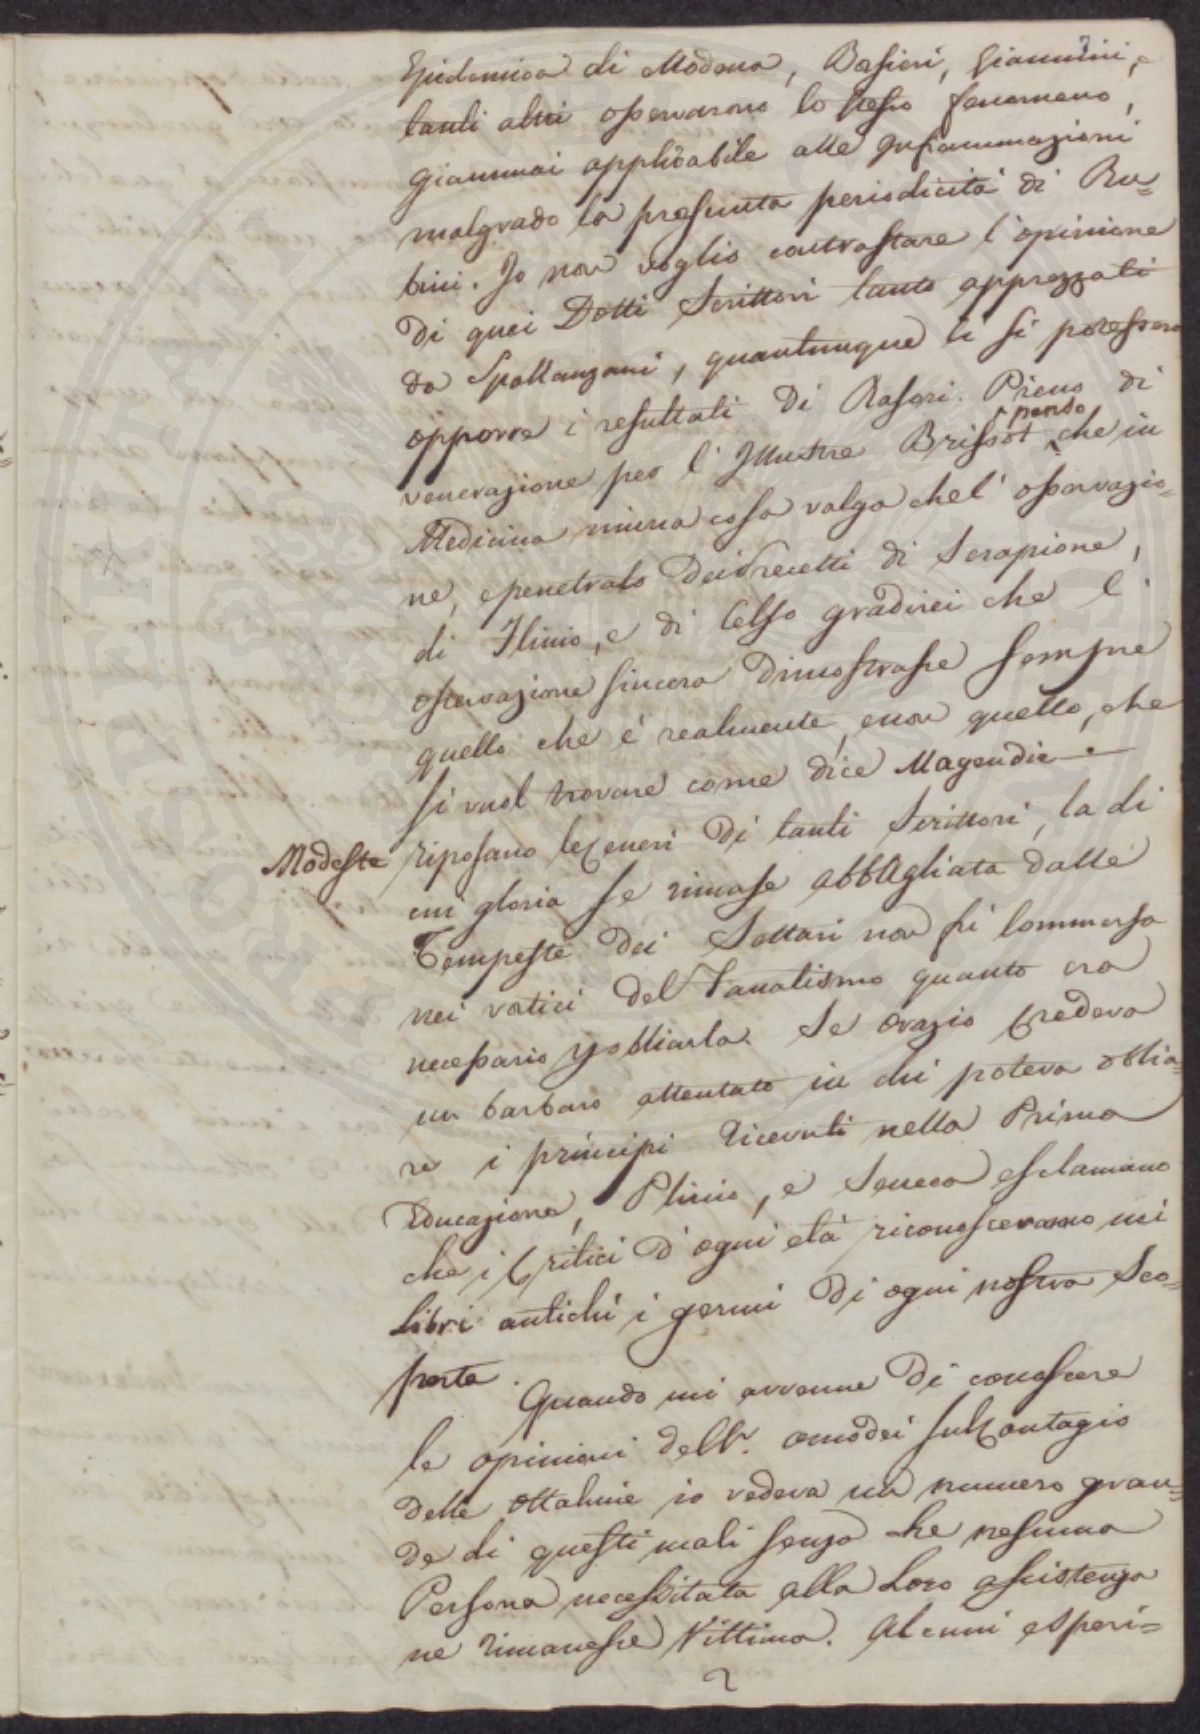 7
Epidemica di Modena, Borsieri, Giannini, e
tanti altri osservarono lo stesso fenomeno,
giammai applicabile alle Infiammazioni
malgrado la presunta periodicità di Ru=
bini. Io non voglio contrastare l'opinione
di quei Dotti Scrittori tanto apprezzati
da Spallanzani, quantunque li si potessero
opporre i resultati di Rasori. Pieno di
venerazione per l'Illustre Brissot penso che in
Medicina niuna cosa valga che l'osservazio=
ne, e penetrato dei Precetti di Serapione,
di Plinio, e di Celso gradirei che l'
osservazione sincera dimostrasse sempre
quello che è realmente, e non quello, che
si vuol trovare come dice Magendie.
Modeste riposano le Ceneri di tanti Scrittori, la di
cui gloria se rimase abbagliata dalle
Tempeste dei Settari non fu sommersa
nei vortici del Fanatismo quanto era
necessario p obliarla. Se Orazio credeva
un barbaro attentato in chi poteva oblia=
re i principi ricevuti nella Prima
Educazione, Plinio, e Seneca esclamano
che i Critici d'ogni età riconosceranno nei
Libri antichi i germi di ogni nostra Sco=
perta.
Quando mi avvenne di conoscere
le opinioni dell'. Omodei sul Contagio
delle Ottalmie io vedeva un numero gran=
de di questi mali senza che nessuna
Persona necessitata alla Loro assistenza
ne rimanesse Vittima. Alcuni esperi=
2